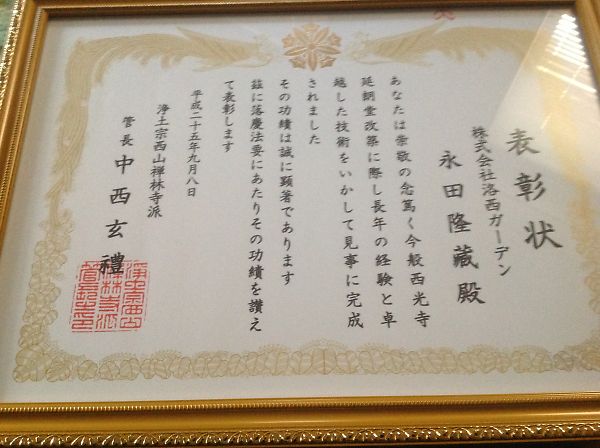 表彰状
株式会社洛西ガーデン
永田隆藏殿
あなたは崇敬の念篤く今般西光寺
延朙堂改築に際し長年の経験と卓
越した技術をいかして見事に完成
されました
その功績は誠に顕著であります
茲に落慶法要にあたりその功績を讃え
て表彰します
平成二十五年九月八日
浄土宗西山禅林寺派
管長 中西玄禮